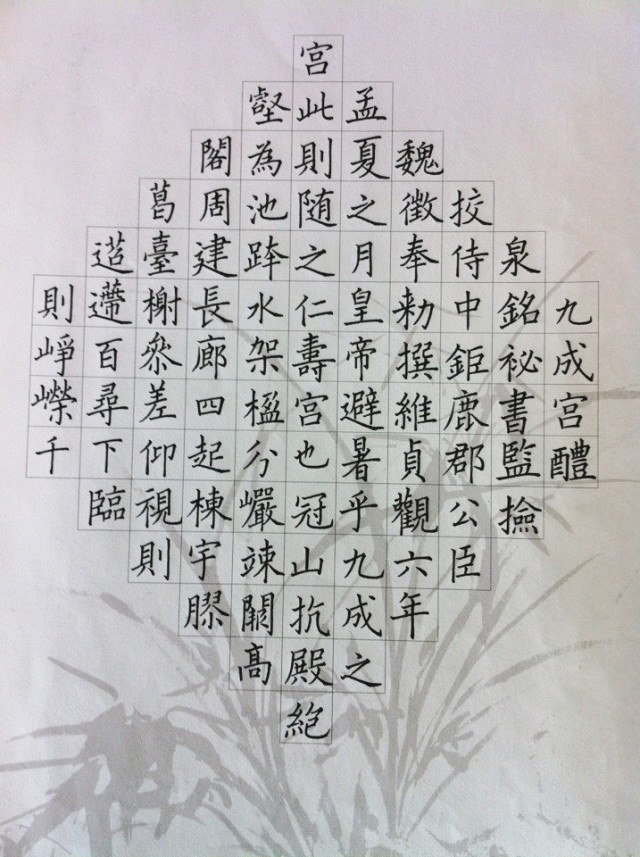 九成宫醴
泉銘祕書監撿
挍侍中鉅鹿郡公臣
魏徵奉勑撰維貞觀六年
孟夏之月皇帝避暑乎九成之
宫此則随之仁壽宫也冠山抗殿絶
壑為池跨水架楹分巖竦闕髙
閣周建長廊四起棟宇膠
葛臺榭叅差仰視則
迢遰百尋下臨
則崢嶸千